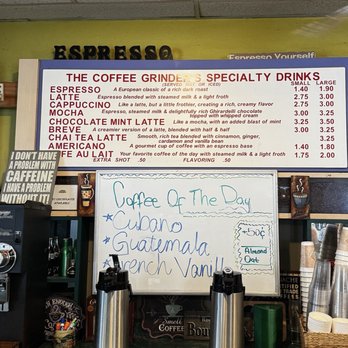 ESPRESSO
Espresso Yourself
THE COFFEE GRINDER'S SPECIALTY DRINKS
(SERVED HOT OR ICED) SMALL LARGE
ESPRESSO A European classic of a rich dark roast 1.40 1.90
LATTE Espresso blended with steamed milk & a light froth 2.75 3.00
CAPPUCCINO Like a latte, but a little frothier, creating a rich, creamy flavor 2.75 3.00
MOCHA Espresso, steamed milk & delightfully rich Ghirardelli chocolate 3.00 3.25
topped with whipped cream
CHOCOLATE MINT LATTE Like a mocha, with an added blast of mint 3.25 3.50
BREVE A creamier version of a latte, blended with half & half 3.00 3.25
CHAI TEA LATTE Smooth, rich tea blended with cinnamon, ginger, 3.25
cardamon and vanilla bean
AMERICANO A gourmet cup of coffee with an espresso base 1.40 1.80
FE AU LAIT Your favorite coffee of the day with steamed milk & a light froth 1.75 2.00
EXTRA SHOT .50 FLAVORING .50
I DON'T HAVE
A PROBLEM WITH
CAFFEINE
I HAVE A PROBLEM
WITHOUT IT
Coffee Of The Day
*Cubano
*Guatemala
French Vanill
+50¢
Almond
Oat
COFFEE